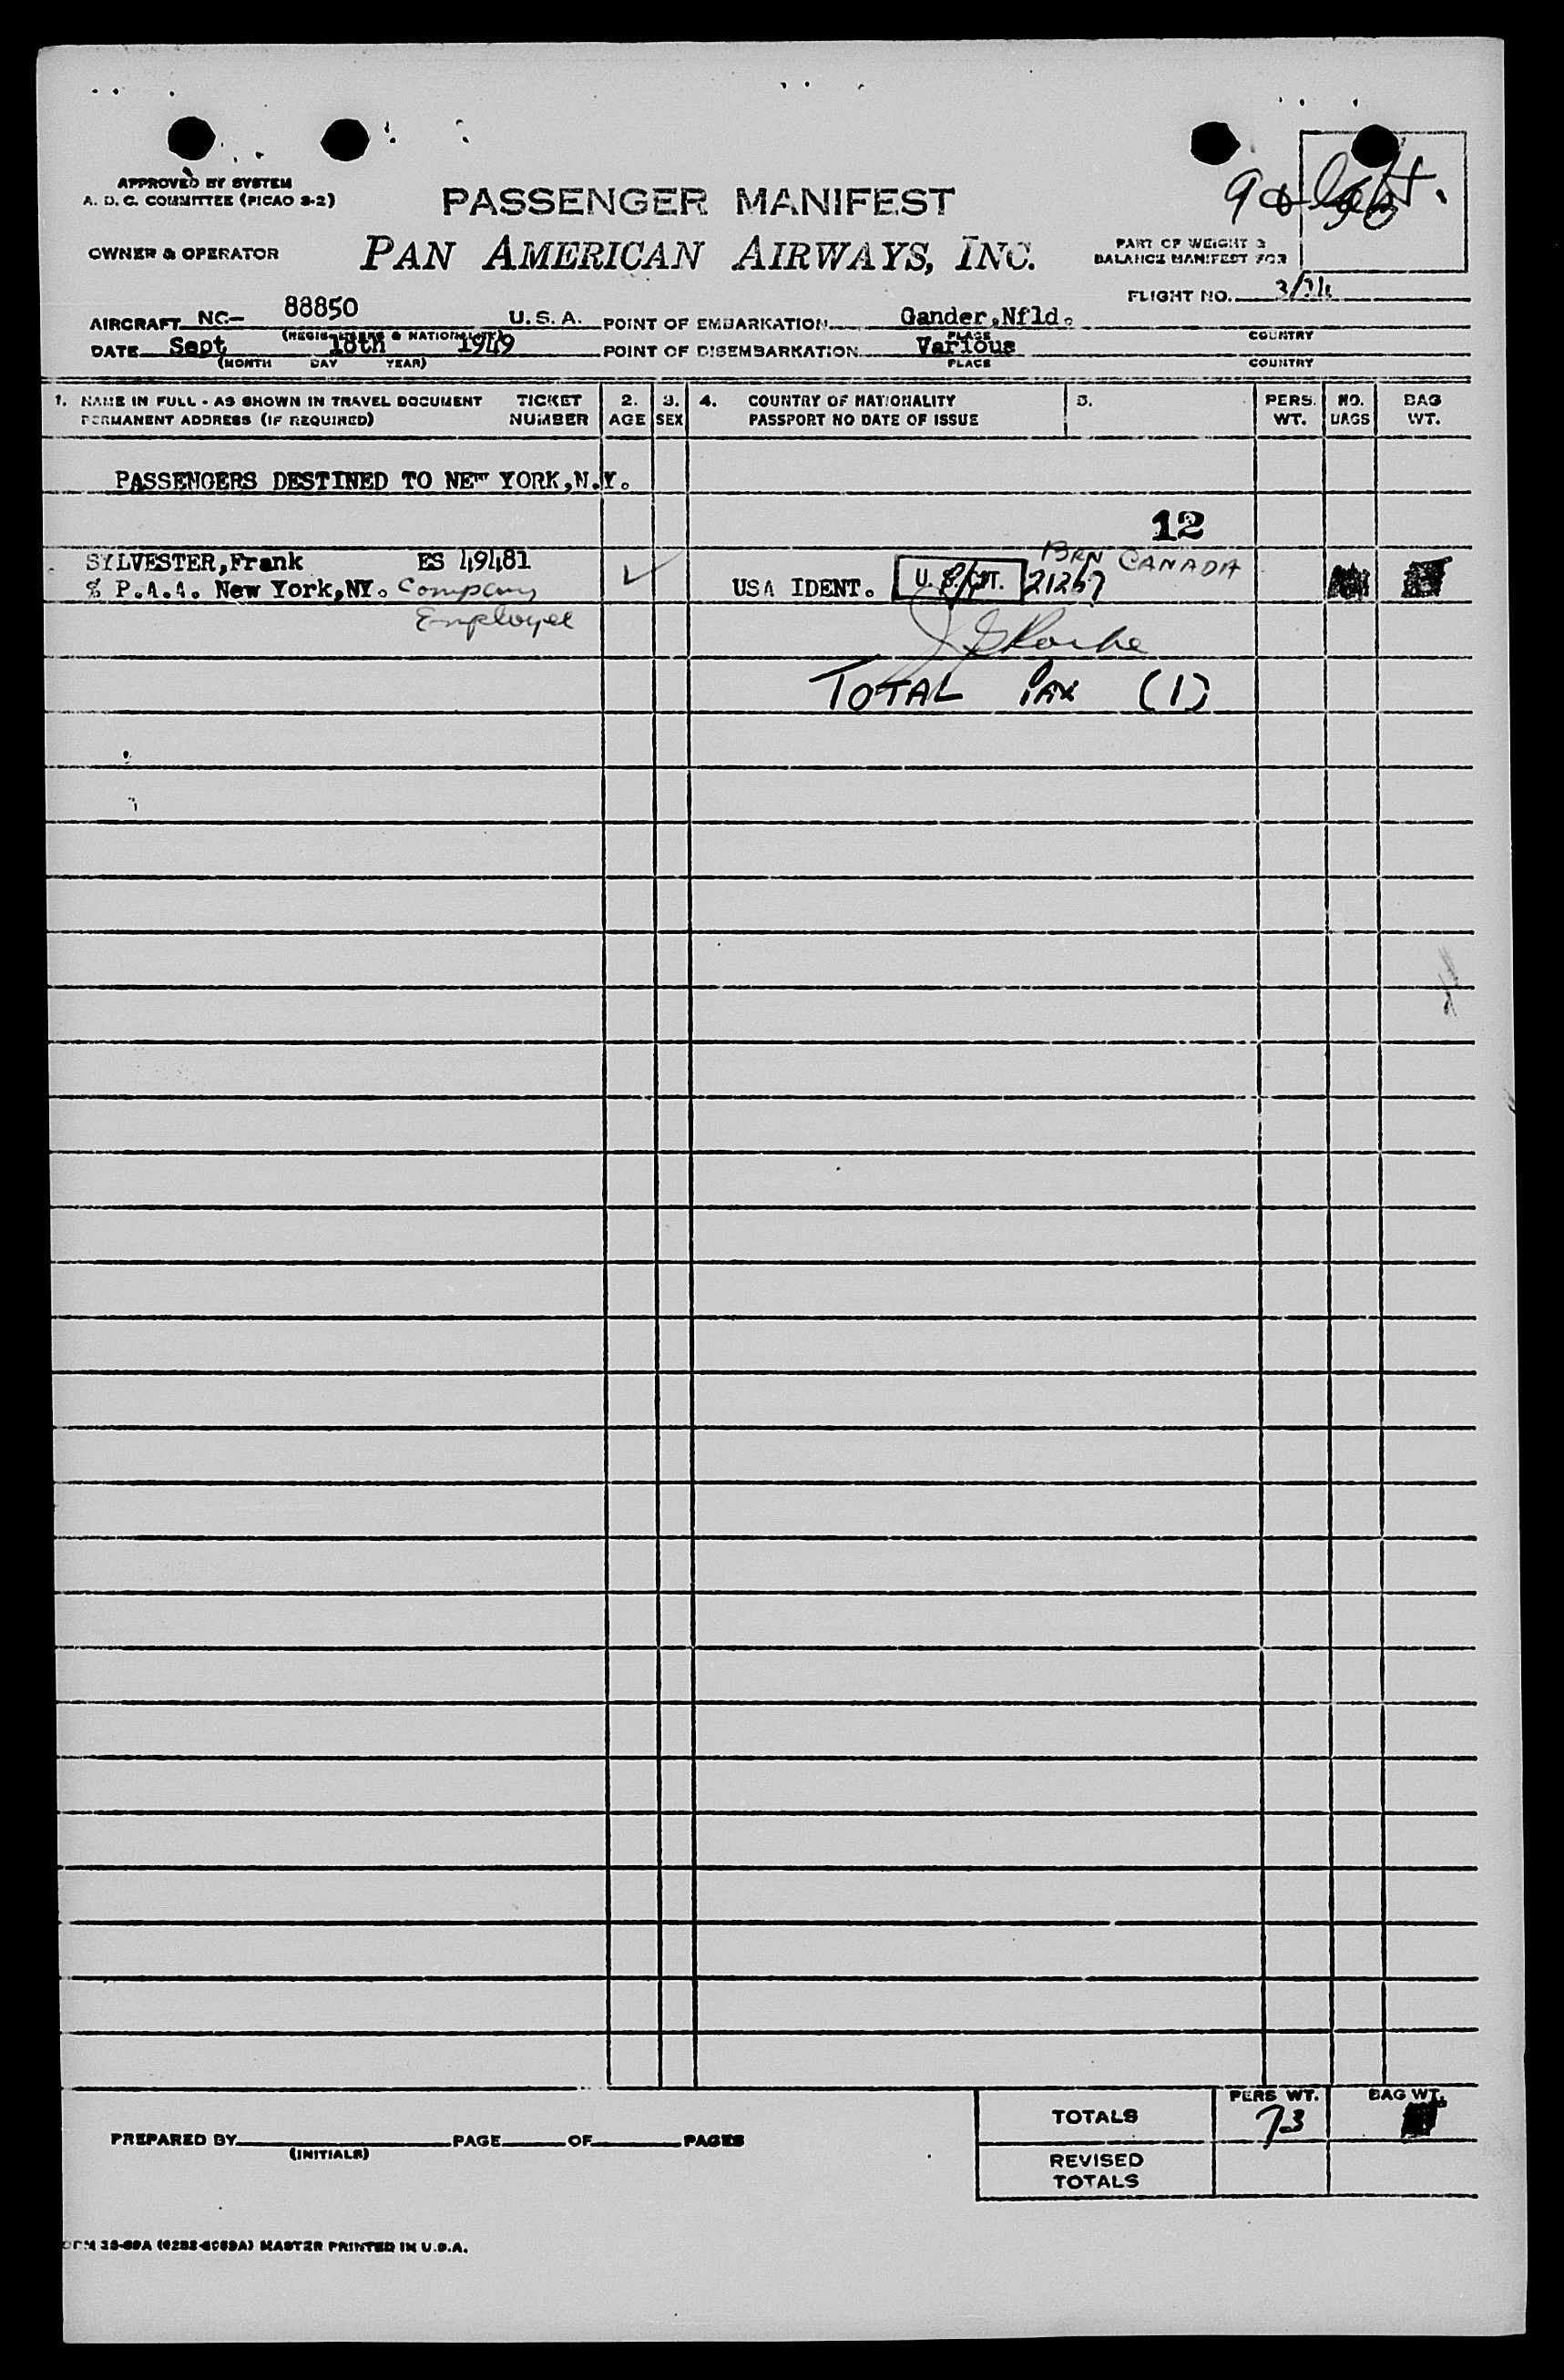 APPROVED BY SYSTEM
A. D. C. COMMITTEE (PICAO S-2)
PASSENGER MANIFEST
OWNER & OPERATOR
PAN AMERICAN AIRWAYS, INC.
PART OF WEIGHT &
BALANCE MANIFEST FOR
FLIGHT NO.
AIRCRAFT NC- 88850 U. S. A. POINT OF EMBARKATION Gander,Nfld.
PLACE COUNTRY
DATE Sept 18th 1949 POINT OF DISEMBARKATION Various
(MONTH DAY YEAR) PLACE COUNTRY
1. NAME IN FULL - AS SHOWN IN TRAVEL DOCUMENT TICKET 2. 3. 4. COUNTRY OF NATIONALITY 5. PERS. NO. BAG
PERMANENT ADDRESS (IF REQUIRED) NUMBER AGE SEX PASSPORT NO DATE OF ISSUE WT. BAGS WT.
PASSENGERS DESTINED TO NEW YORK,N.Y.
12
SYLVESTER,Frank ES 49481 BRN CANADA
% P.A.A. New York,NY. Company USA IDENT. U. S. CIT. 21267
Employee
TOTAL PAX (1)
TOTALS PERS WT. BAG WT.
73
PREPARED BY PAGE OF PAGES
(INITIALS)
REVISED
TOTALS
MASTER PRINTED IN U.S.A.